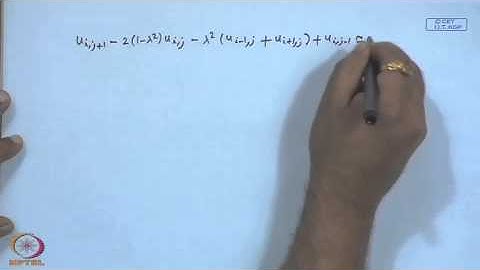 u_{i,j+1} - 2(1-λ²)u_{i,j} - λ²(u_{i-1,j} + u_{i+1,j}) + u_{i,j-1} =
© CET
I.I.T. KGP
NPTEL